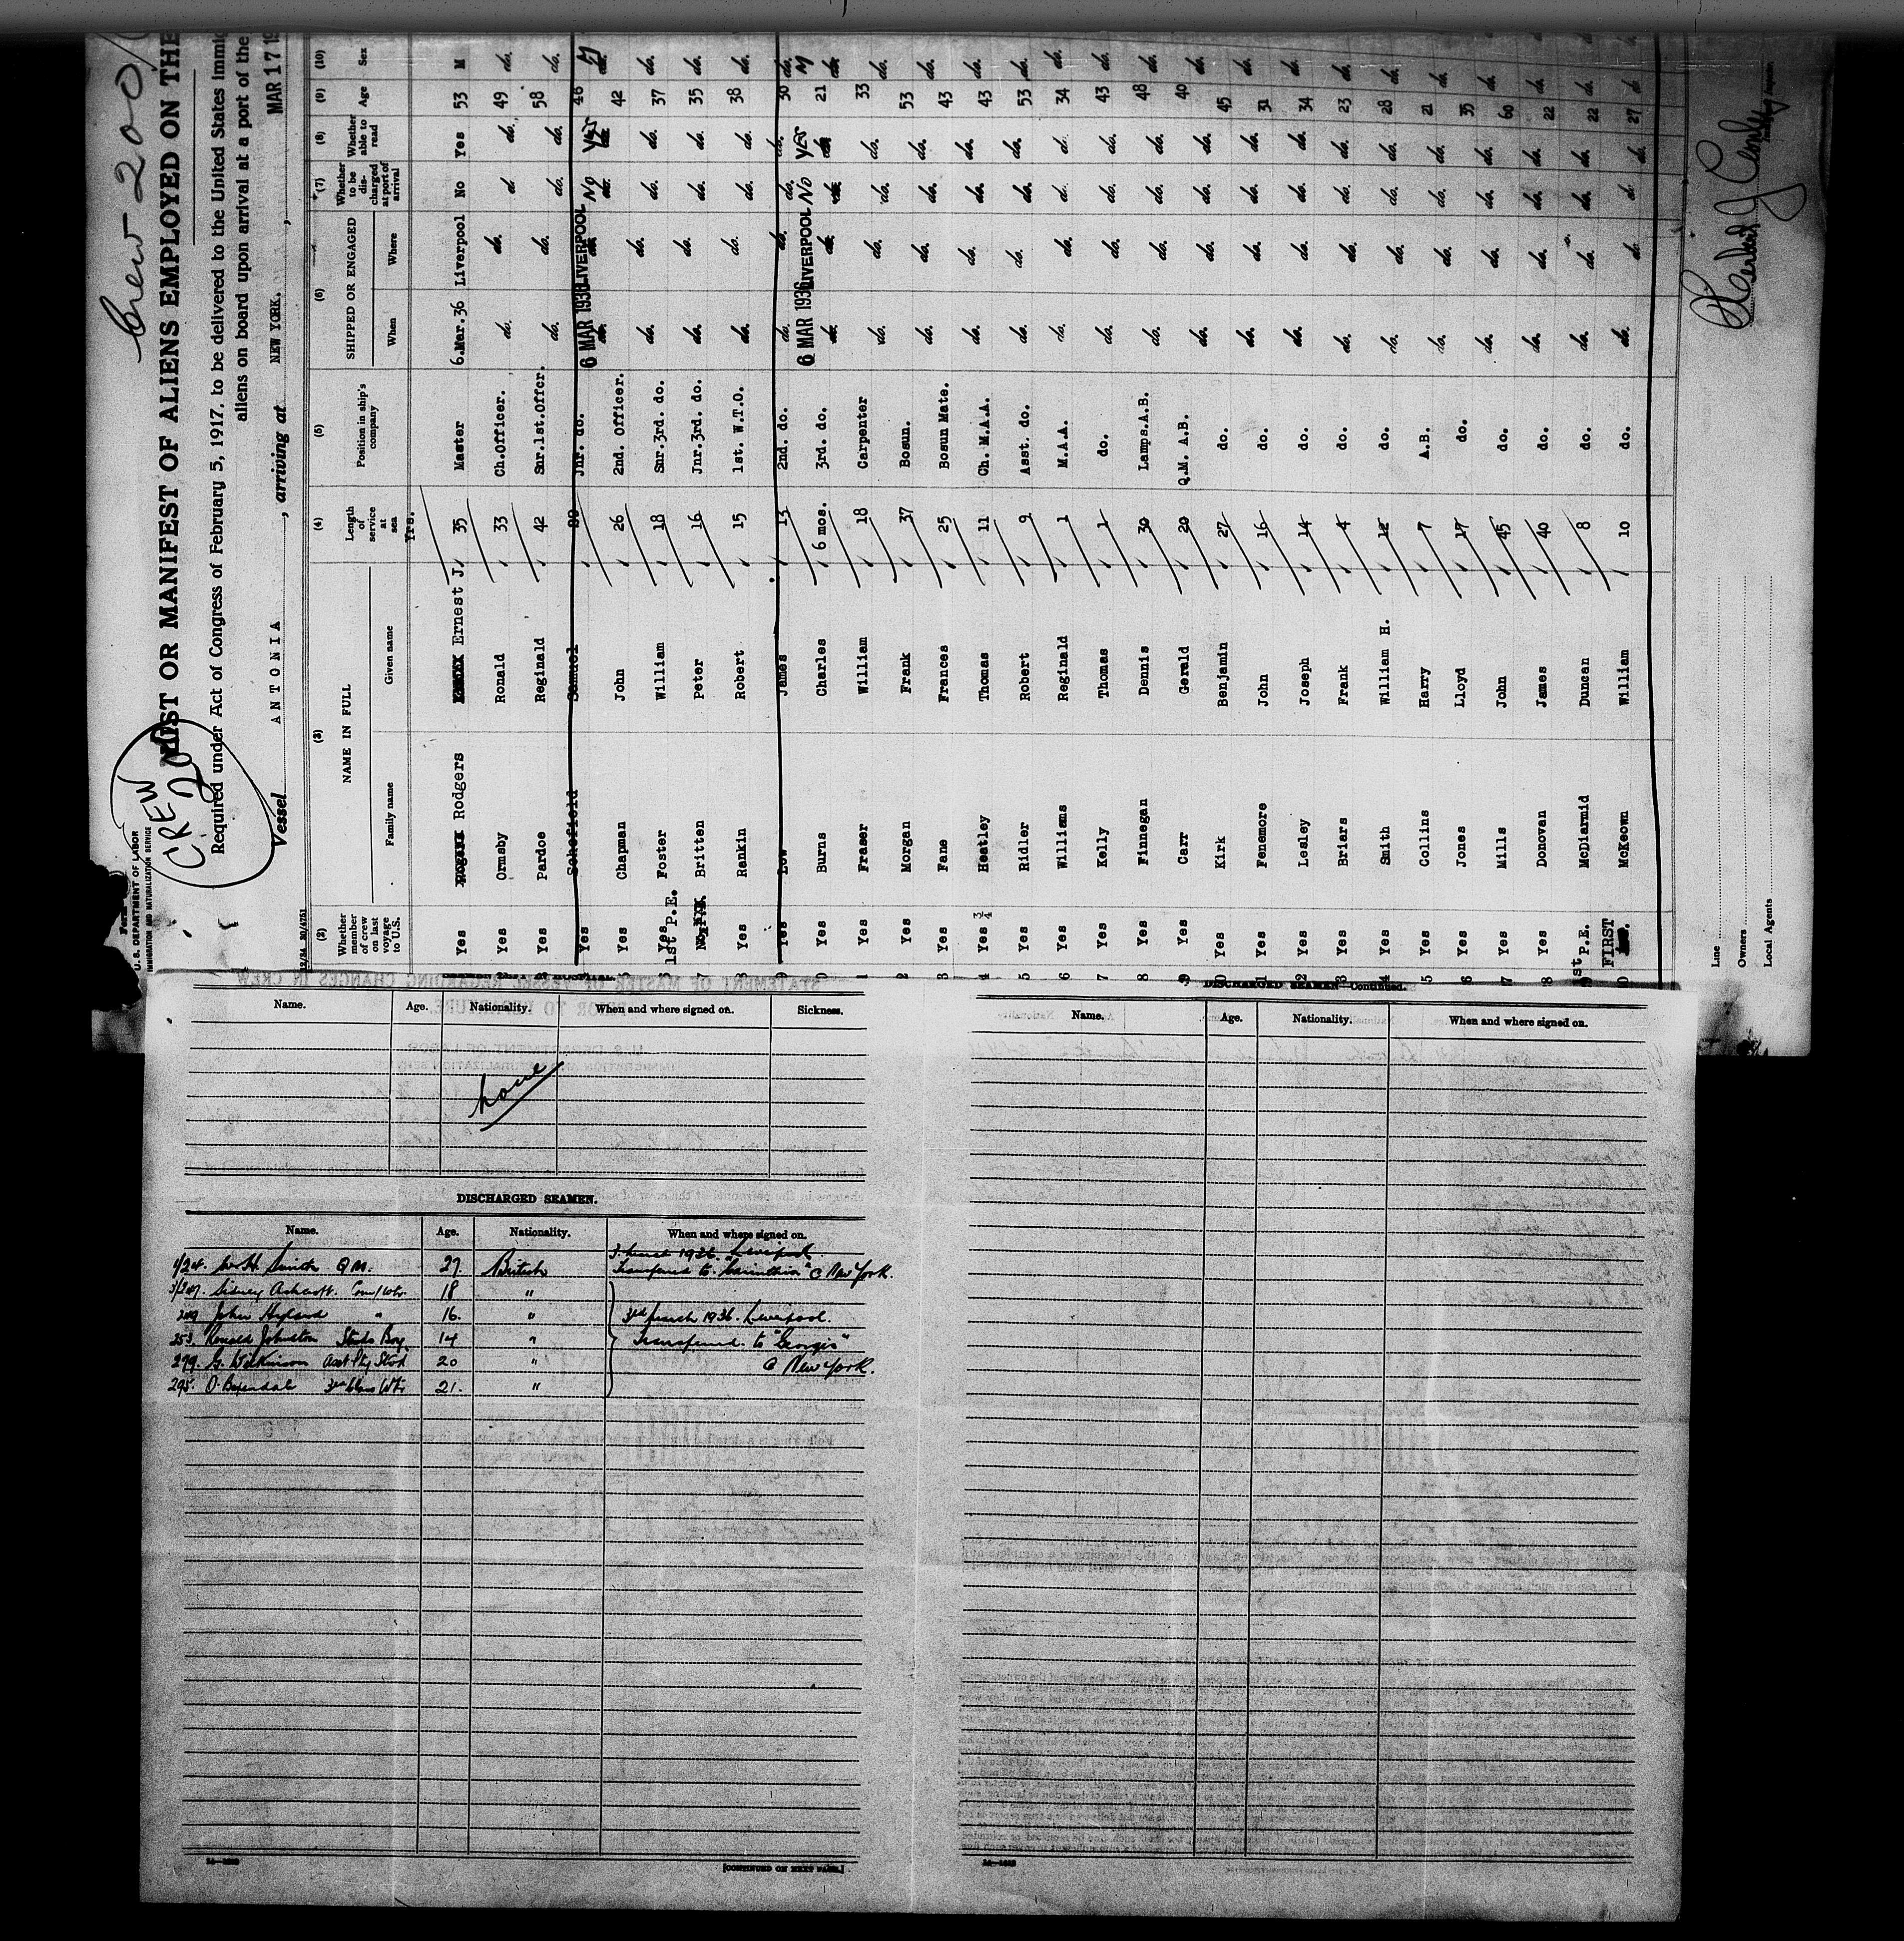 Crew 200
CREW 200
U. S. DEPARTMENT OF LABOR
IMMIGRATION AND NATURALIZATION SERVICE
LIST OR MANIFEST OF ALIENS EMPLOYED ON THE
Required under Act of Congress of February 5, 1917, to be delivered to the United States
aliens on board upon arrival at a port of the
Vessel ANTONIA , arriving at NEW YORK. , MAR 17 19
(2) (3) (4) (5) (6) (7) (8) (9) (10)
Whether member of crew on last voyage to U.S. NAME IN FULL Length of service at sea Position in ship's company SHIPPED OR ENGAGED Whether to be discharged at port of arrival Whether able to read Age Sex
Family name Given name When Where
Yrs.
Yes Rodgers Ernest J. 35 Master 6.Mar.36 Liverpool No Yes 53 M
Yes Ormsby Ronald 33 Ch.Officer. do. do. d do. 49 do.
Yes Pardoe Reginald 42 Snr.1st.Offcr. do. do. do. do. 58 do.
Yes Schofield Samuel Jnr. do. 6 MAR 1936 LIVERPOOL No Yes 46
Yes Chapman John 26 2nd. Officer. do. do. do. do. 42 do.
Yes Foster William 18 Snr.3rd. do. do. do. do. do. 37 do.
1st P.E. Britten Peter 16 Jnr.3rd. do. do. do. do. do. 35 do.
Yes Rankin Robert 15 1st. W.T.O. do. do. do. do. 38 do.
Yes Low James 13 2nd. do. do. do. do. do. 30 do.
Yes Burns Charles 6 mos. 3rd. do. 6 MAR 1936 LIVERPOOL No Yes 21 M
Yes Fraser William 18 Carpenter do. do. do. do. 33 do.
Yes Morgan Frank 37 Bosun. do. do. do. do. 53 do.
Yes Fane Frances 25 Bosun Mate. do. do. do. do. 43 do.
Yes 3/4 Heatley Thomas 11 Ch. M.A.A. do. do. do. do. 43 do.
Yes Ridler Robert 9 Asst. do. do. do. do. do. 53 do.
Yes Williams Reginald 1 M.A.A. do. do. d. d. 34 do.
Yes Kelly Thomas 1 do. do. do. do. do. 43 do.
Yes Finnegan Dennis 30 Lamps.A.B. do. do. do. do. 48 do.
Yes Carr Gerald 20 Q.M. A.B. do. do. do. do. 40 do.
Yes Kirk Benjamin 27 do. do. do. do. do. 45 do.
Yes Fenemore John 16 do. do. do. do. do. 31 do.
Yes Lesley Joseph 14 do. do. do. do. do. 34 do.
Yes Briars Frank 4 do. do. do. do. do. 23 do.
Yes Smith William H. 12 do. do. do. do. do. 28 do.
Yes Collins Harry 7 A.B. do. do. do. do. 21 do.
Yes Jones Lloyd 17 do. do. do. do. do. 35 do.
Yes Mills John 45 do. do. do. do. do. 60 do.
Yes Donovan James 40 do. do. do. do. do. 22 do.
1st P.E. McDiarmid Duncan 8 do. do. do. do. do. 22 do.
FIRST McKeown William 10 do. do. do. do. do. 27 do.
Line
Owners
Local Agents
Name. Age. Nationality. When and where signed on. Sickness.
none
DISCHARGED SEAMEN.
Name. Age. Nationality. When and where signed on.
3. March 1936. Liverpool.
1/24. W. H. Smith Q M. 27 British Transferred to "Carinthia" @ New York.
3/247. Sidney Ashcroft. 18 "
249 John Hyland " 16. " 3rd March 1936. Liverpool.
253. Ronald Johnston Stwds Boy 14 " Transferred to "Georgic"
279. G. Wilkinson Asst Pty Stwd 20 " @ New York.
295. O. Baxendale 3rd Class Wtr 21. "
[CONTINUED ON NEXT PAGE.]
DISCHARGED SEAMEN—Continued.
Name. Age. Nationality. When and where signed on.